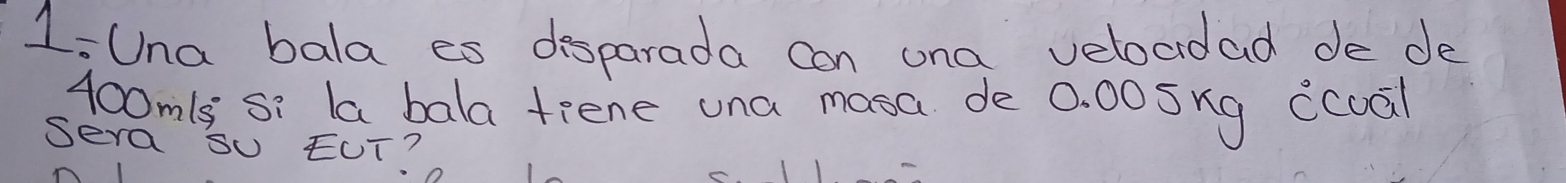 1.- Una bala es disparada con una velocidad de de
400m/s; si la bala tiene una masa de 0.005kg ¿cuál
sera su ECT?